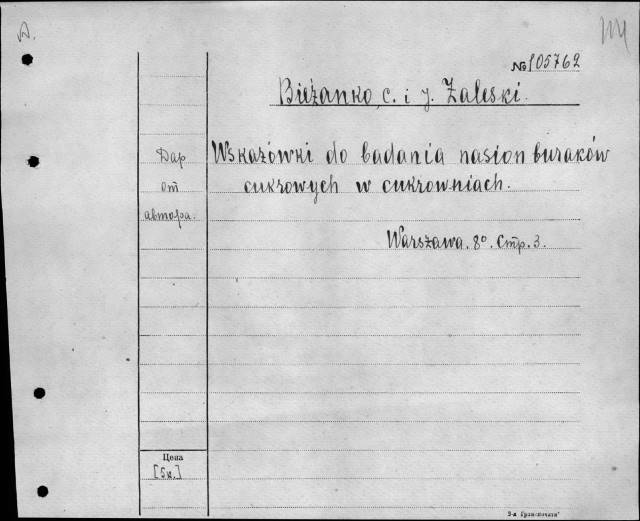 А.
№ 105762
Bieżanko, C. i J. Zaleski.
Дар
от
автора.
Wskazówki do badania nasion buraków
cukrowych w cukrowniach.
Warszawa. 8°. Стр. 3.
Цена
[5к.]